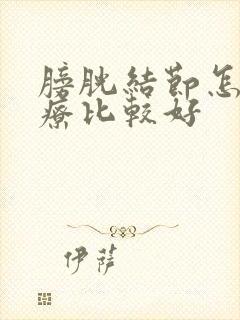 膀胱結節怎
療比較好
伊薩